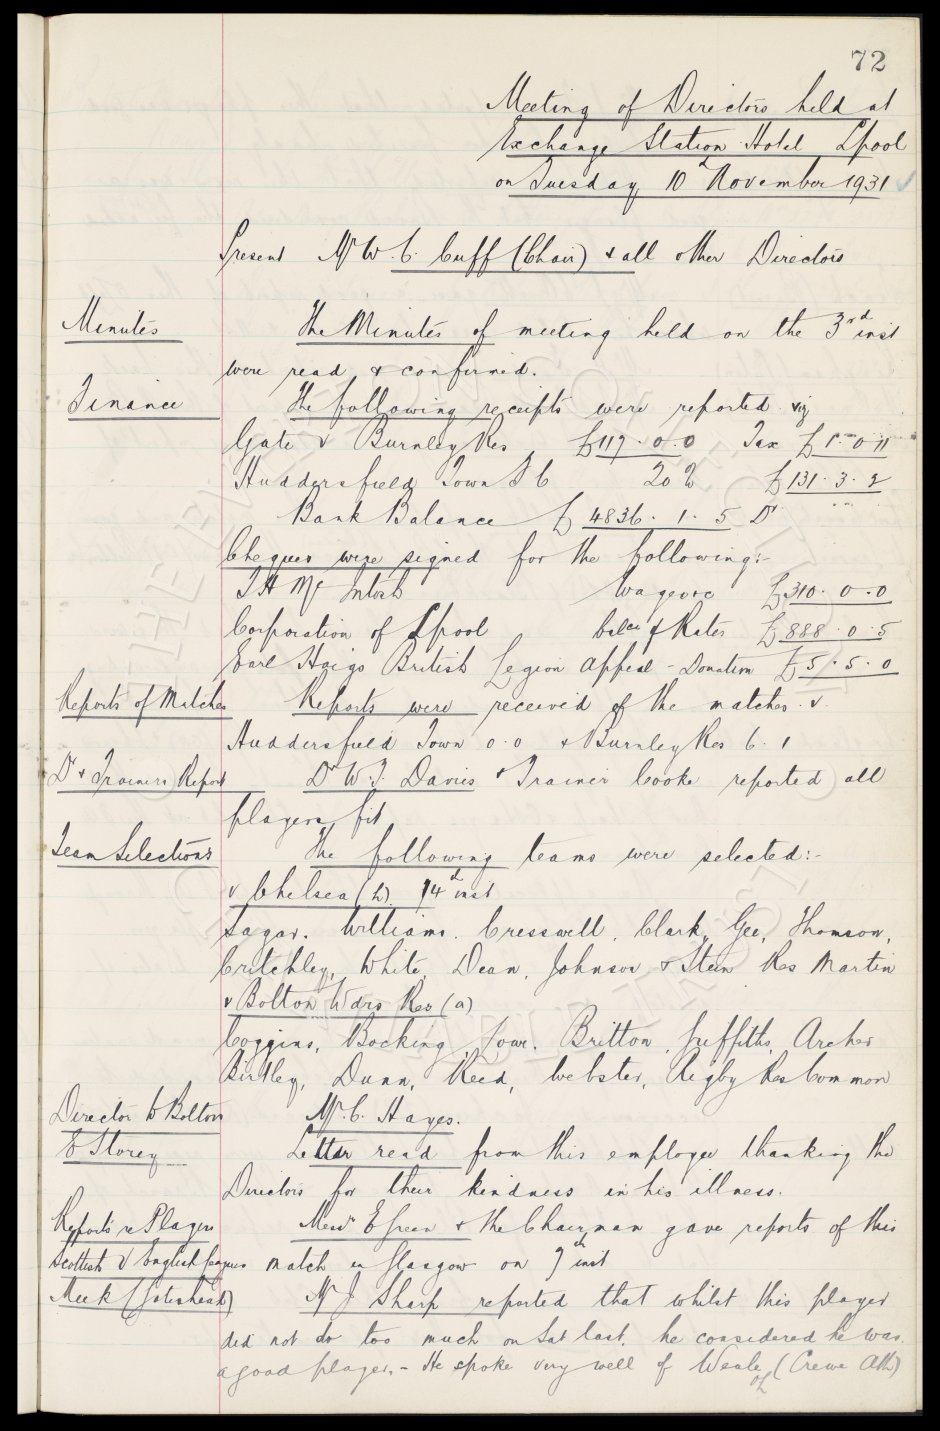 72
Meeting of Directors held at
Exchange Station Hotel Lpool
on Tuesday 10th November 1931
Present Mr W. C. Cuff (Chair) & all other Directors
Minutes The Minutes of meeting held on the 3rd inst
were read & confirmed.
Finance The following receipts were reported viz
Gate v Burnley Res £117.0.0 Tax £1.0.11
Huddersfield Town F C 20% £131.3.2
Bank Balance £4836.1.5 Dr
Cheques were signed for the following:-
T H McIntosh Wages &c £310.0.0
Corporation of Lpool balce of Rates £888.0.5
Earl Haigs British Legion Appeal - Donation £5.5.0
Reports of Matches Reports were received of the matches v.
Huddersfield Town 0.0 & Burnley Res 6.1
Dr & Trainers Report Dr W. J. Davies & Trainer Cooke reported all
players fit
Team Selections The following teams were selected:-
v Chelsea (h). 14th inst
Sagar. Williams. Cresswell. Clark, Gee, Thomson,
Critchley, White, Dean, Johnson & Stein Res Martin
v Bolton Wdrs Res (a)
Coggins, Bocking, Lowe. Britton, Griffiths, Archer
Birtley, Dunn, Reed, Webster, Rigby Res Common
Director to Bolton Mr. C. Hayes.
E Storey Letter read from this employee thanking the
Directors for their kindness in his illness.
Reports re Players Messrs E Green & the Chairman gave reports of this
Scottish v English Leagues match in Glasgow on 7th inst
Meek (Gateshead) Mr J Sharp reported that whilst this player
did not do too much on Sat last. he considered he was
a good player. - He spoke very well of Weale of (Crewe Alx)